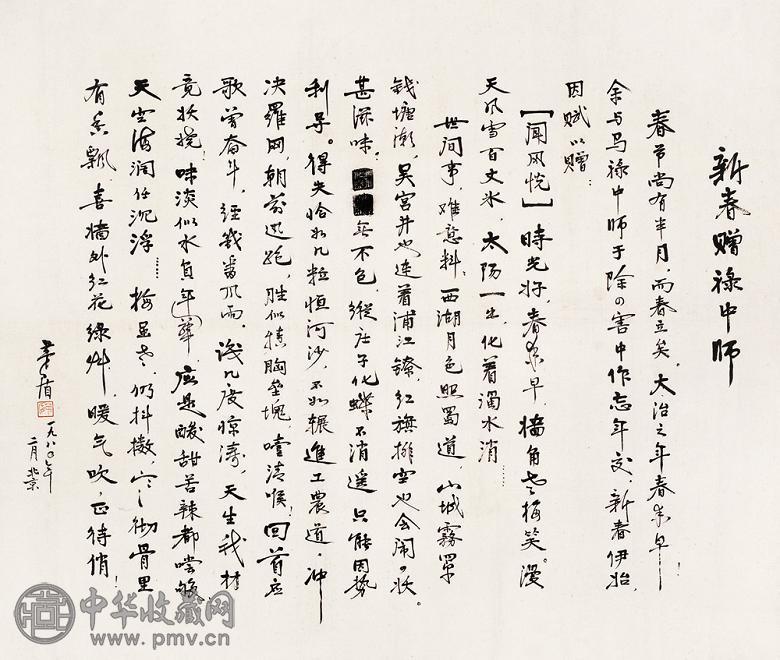 新春赠禄中师
春节尚有半月，而春立矣。大治之年春来早！
余与马禄中师于除四害中作忘年交，新春伊始，
因赋以赠：
【闻风悦】时光好，春来早，墙角老梅笑。漫
天风雪百丈冰，太阳一出，化着浊水消……
世间事，难意料。西湖月色照蜀道，山城雾罩
钱塘潮，吴宫井也连着浦江镣，红旗掩空也会闹妖。
甚滋味，无不包，纵庄子化蝶不消遥，只能因势
利导。得失恰如几粒恒河沙，不如辗进工农道，冲
决罗网，朝前迅跑，胜似填胸垒块，噎清喉！回首应
歌曾奋斗，经几番风雨，识几度惊涛，天生我材
竟妖挠！味淡似水自年华，应是酸甜苦辣都尝够，
天空海阔任沉浮……梅虽老，仍抖擞，宁彻骨里
有香飘，喜墙外红花绿草，暖气吹，正待俏！
茅盾
一九八〇年
二月北京
中华收藏网
www.pmv.cn